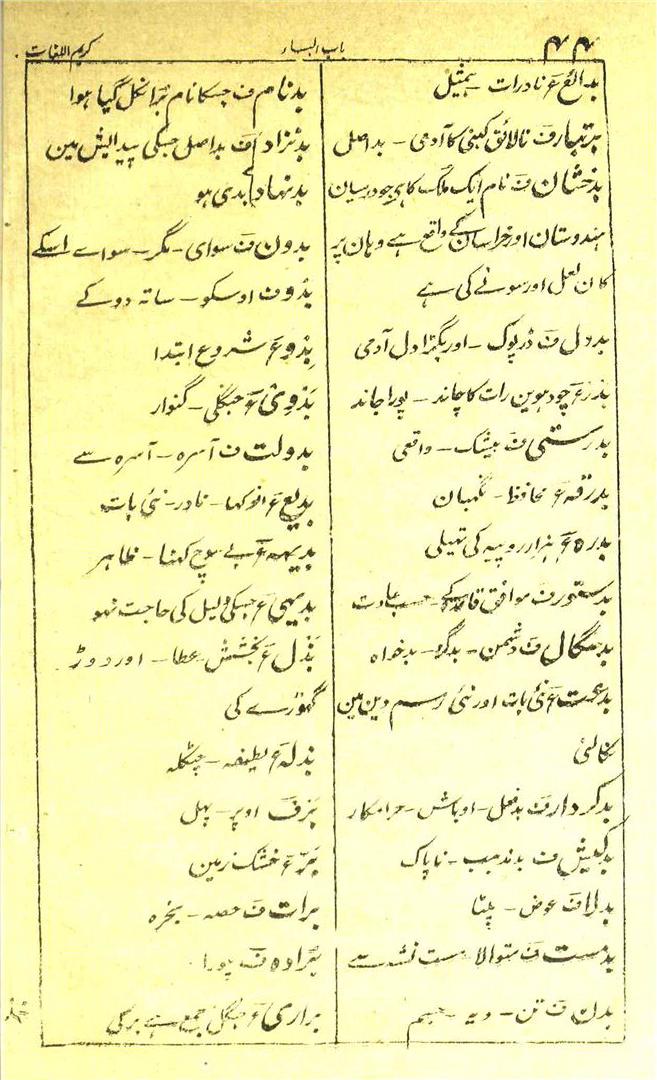 ۴۴
باب البار
کریم اللغات
بدائع ع نادرات – بیمثیل
بدتبار ف نالائق کمینی کا آدمی – بد اصلی
بدخشان ف نام ایک ملک کا ہی جو درمیان
ہندوستان اور خراسان کے واقع ہے وہان پر
کان لعل اور سونے کی ہے
بددل ف ڈرپوک – اور بگڑا دل آدمی
بدر ع چودہوین رات کا چاند – پورا چاند
بدرستی ف بیشک – واقعی
بدرقہ ع محافظ – نگہبان
بدرہ ع ہزار روپیہ کی تہیلی
بدستور ف موافق قاعدہ کے – حسب عادت
بدسگال ف دشمن – بدگو – بدخواہ
بدعت ع نئی بات اور نئی رسم دین مین
نکالنی
بدکردار ف بدفعل – اوباش – حرامکار
بدکیش ف بد مذہب – ناپاک
بدلا ف عوض – پلٹا
بدمست ف متوالا مست نشہ سے
بدن ف تن – دیہ – جسم
بدنام ف جسکا نام برا نکل گیا ہوا
بدنژاد ف بد اصل جسکی پیدایش مین
بدنہاد بدی ہو
بدون ف سوای – مگر – سواے اسکے
بدو ف اوسکو – ساتہ دو کے
بدو ع شروع ابتدا
بدوی ع جنگلی – گنوار
بدولت ف آسرہ – آسرہ سے
بدیع ع انوکہا – نادر – نئی بات
بدیہہ ع بے سوچ کہنا – ظاہر
بدیہی ع جسکی دلیل کی حاجت نہو
بذل ع بخشش – عطا – اور دوڑ
گہوڑے کی
بذلہ ع لطیفہ – چٹکلہ
بر ف اوپر – پہل
بر ع خشک زمین
برات ف حصہ – بخرہ
برادہ ف پورا
براری ع جنگل جمع ہے بر کی